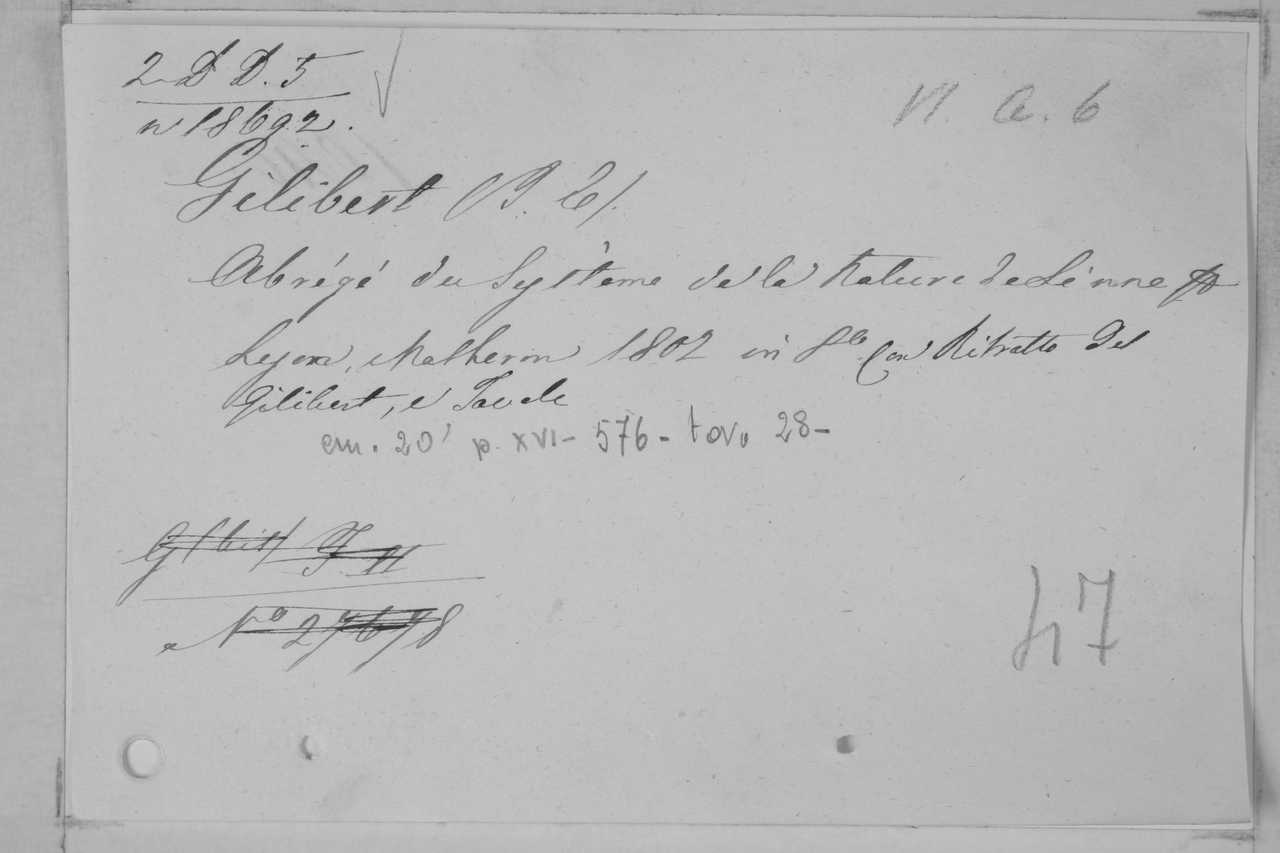 2 D D. 5
n 18692.
VI. A. 6
Gilibert (J. E).
Abrégé du Système de la Nature de Linne
Lyon, Matheron 1802 in 8o. Con Ritratto del
Gilibert, e Tavole
cm. 20' p. XVI- 576- tav. 28-
47
No 27678